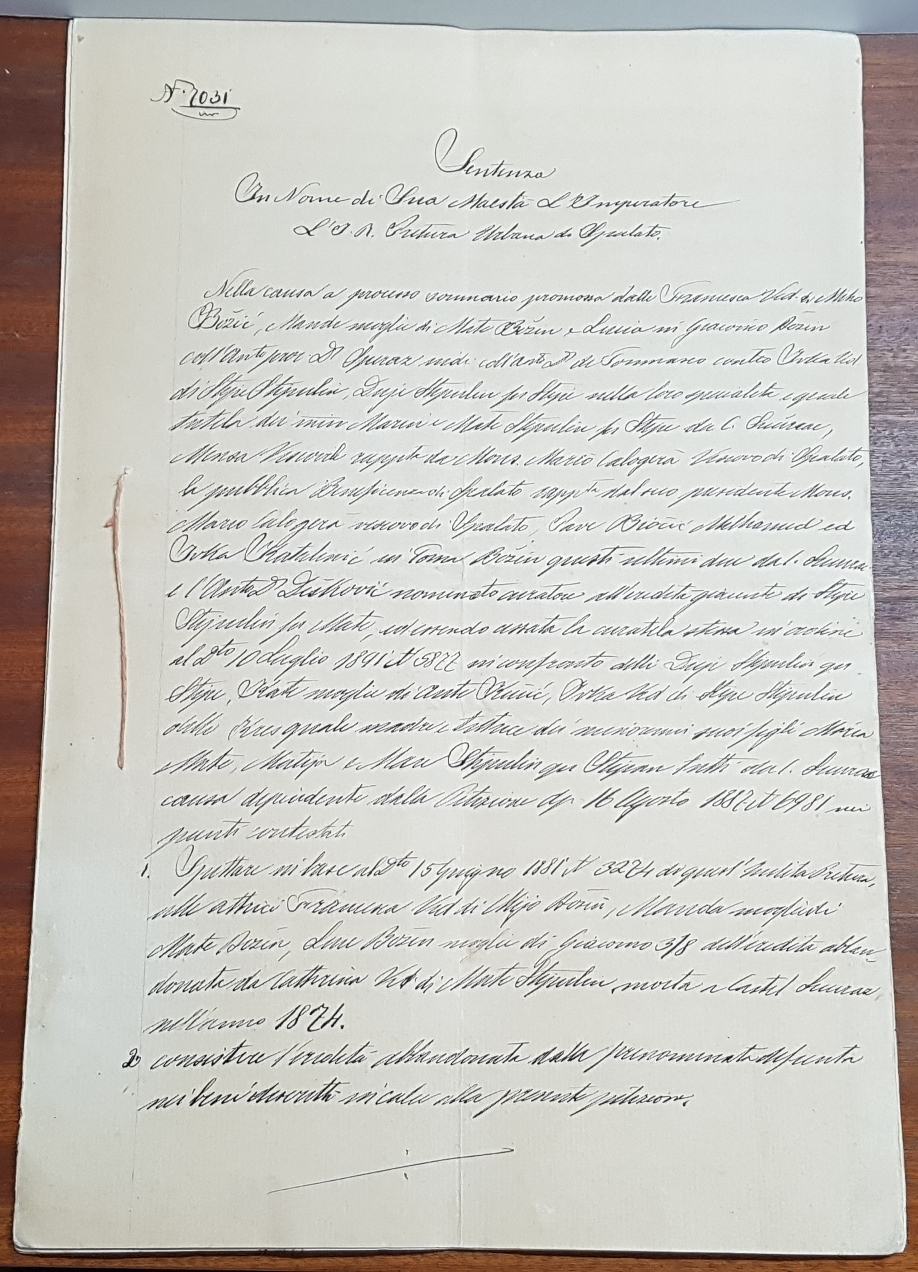 N. 7031
Sentenza
In Nome di Sua Maestà L'Imperatore
L'I. R. Pretura Urbana di Spalato.
Nella causa a processo sommario promossa dalle Francesca Ved. di Miho
Božić, Mande moglie di Mate Božin e Lucia in Giacomo Božin
coll'Anto pror Dr mai coll'avto Dr de Tommaso contro Ivka Ved
di Stipe Stipulin, Duje Stipulin fu Stipe nella loro specialità e quale
tutela dei min Marin e Mate Stipulin fu Stipe da C. Sućurac,
Mensa Vescovile rappta da Mons. Marco Calogerà Vescovo di Spalato,
la pubblica Beneficenza di Spalato rappta dal suo presidente Mons.
Marco Calogerà vescovo di Spalato, Pave Biočić ed
Ivka in Toma Božin questi ultimi due da C. Sućurac
e l'Avto Dr Dešković nominato curatore all'eredità giacente di Stipe
Stipulin fu Mate, ed essendo cessata la curatela stessa in ordine
al Dto 10 Luglio 1891 N 5877 in confronto delli Duje Stipulin qm
Stipe, Kate moglie di Ante Ivka Ved di Stipe Stipulin
quale madre e tutrice dei minorenni suoi figli Maria
Mate, Matija e Mare Stipulin qm Stipan tutti da C. Sućurac
causa dipendente dalla Petizione dp. 16 Agosto 1887 N 6981 nei
punti contestati
1. Spettare in base al Dto 15 Giugno 1881 N 3274 di quest'Inclita Pretura,
alle attrici Francesca Ved di Mijo Božin, Manda moglie di
Mate Božin, Luce Božin moglie di Giacomo 3/8 dell'eredità abban-
donata da Catterina Ved di Mate Stipulin, morta a Castel Sućurac
nell'anno 1874.
2) consistere l'eredità abbandonata dalla prenominata defunta
nei beni descritti in calce alla presente petizione.